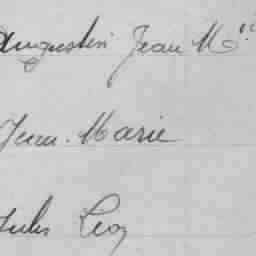 Augustin Jean M ie
Jean-Marie
Jules Léon